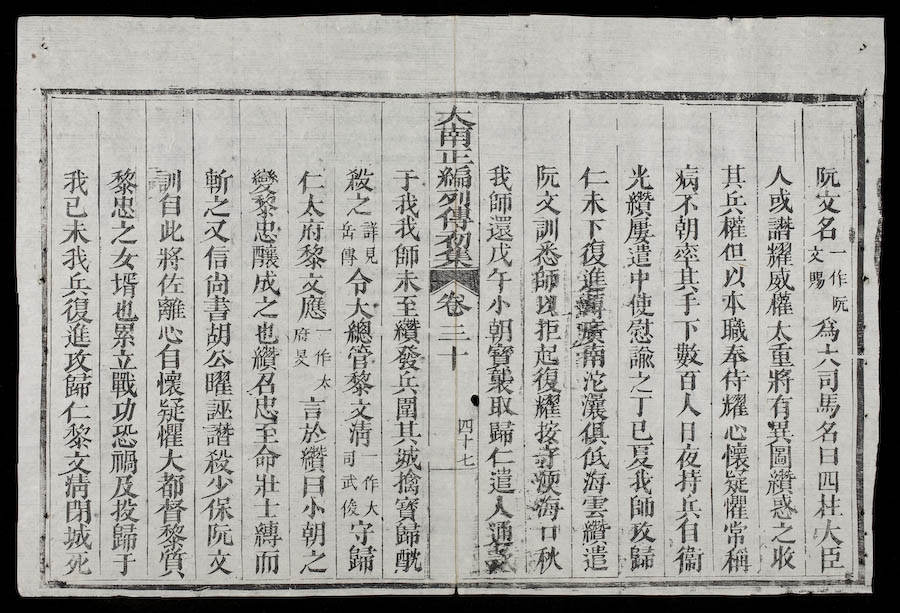 阮文名一作阮文賜為大司馬名曰四柱大臣
人或譖耀威權太重將有異圖纘惑之收
其兵權但以本職奉侍耀心懷疑懼常稱
病不朝率其手下數百人日夜持兵自衞
光纘屢遣中使慰諭之丁巳夏我師攻歸
仁未下復進廣南沱㶞俱低海雲纘遣
阮文訓悉師以拒起復耀按守㴜海口秋
我師還戊午小朝寶襲取歸仁遣人通
大南正編列傳初集 卷三十 四十七
于我我師未至纘發兵圍其城擒寶歸酖
殺之詳見岳傳令大總管黎文清一作大司武俊守歸
仁太府黎文應一作太府旻言於纘曰小朝之
變黎忠釀成之也纘名忠至命壯士縛而
斬之又信尚書胡公曜誣譖殺少保阮文
訓自此將佐離心自懷疑懼大都督黎質
黎忠之女壻也累立戰功恐禍及投歸于
我己未我兵復進攻歸仁黎文清閉城死